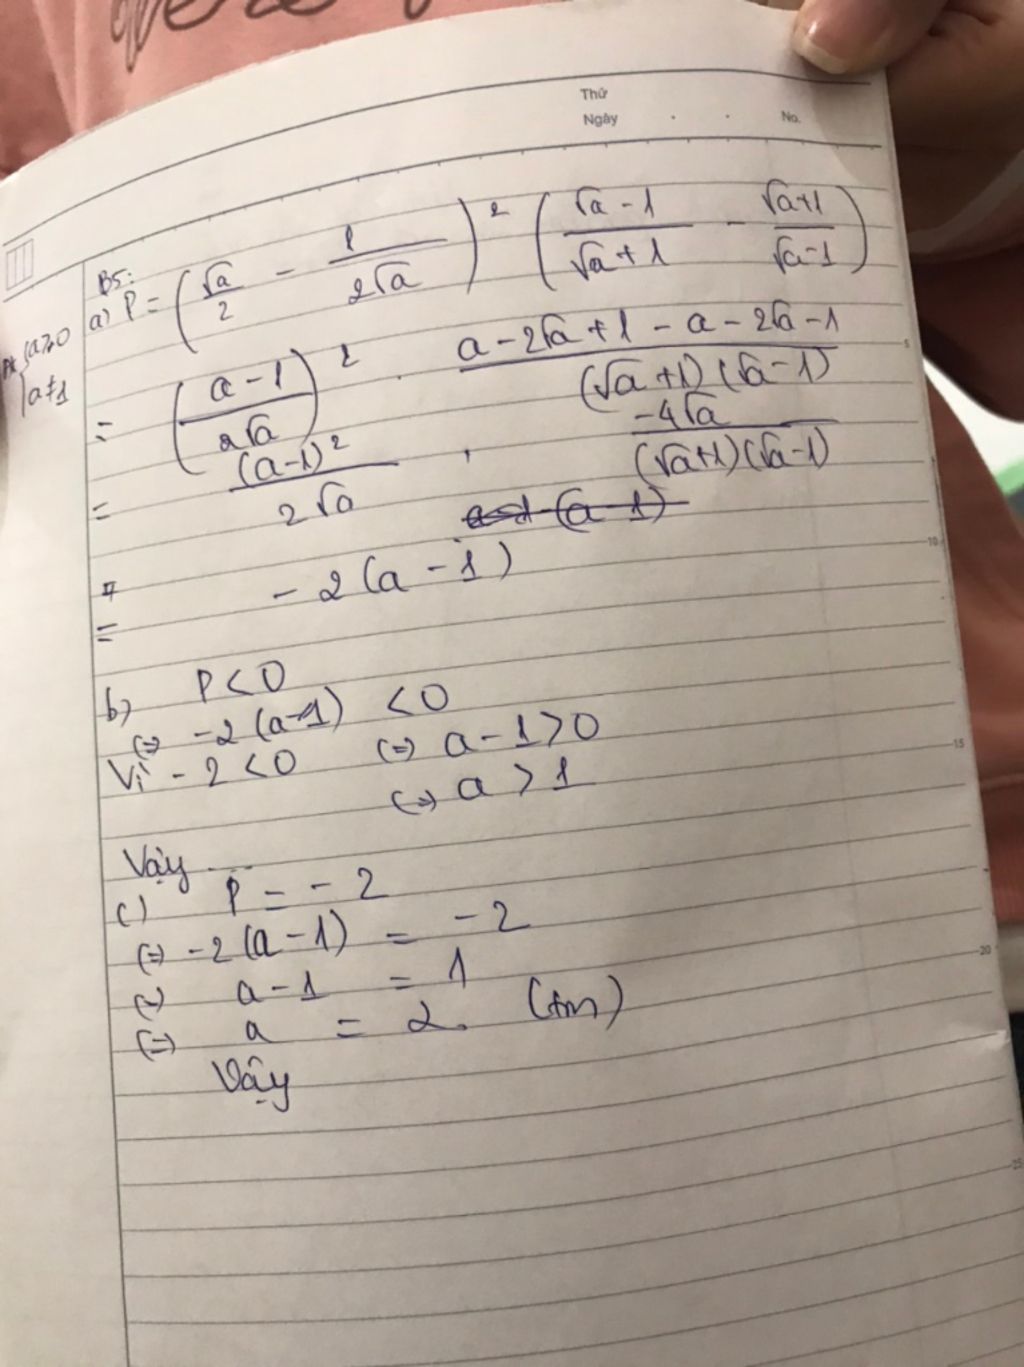 Thứ
Ngày . . No.
B5:
a) P = (√a/2 - 1/2√a)² (√a - 1/√a + 1 - √a+1/√a-1)
{a>0
a≠1
= (a-1/2√a)² . a-2√a+1-a-2√a-1/(√a+1)(√a-1)
= (a-1)²/2√a . -4√a/(√a+1)(√a-1)
(a-1)
= -2(a-1)
=
b) P<0
(=) -2(a-1) <0
Vì -2<0 (=) a-1>0
(=) a>1
Vậy ...
c) P = -2
(=) -2(a-1) = -2
(=) a-1 = 1
(=) a = 2. (tm)
Vậy
5
10
15
20
25